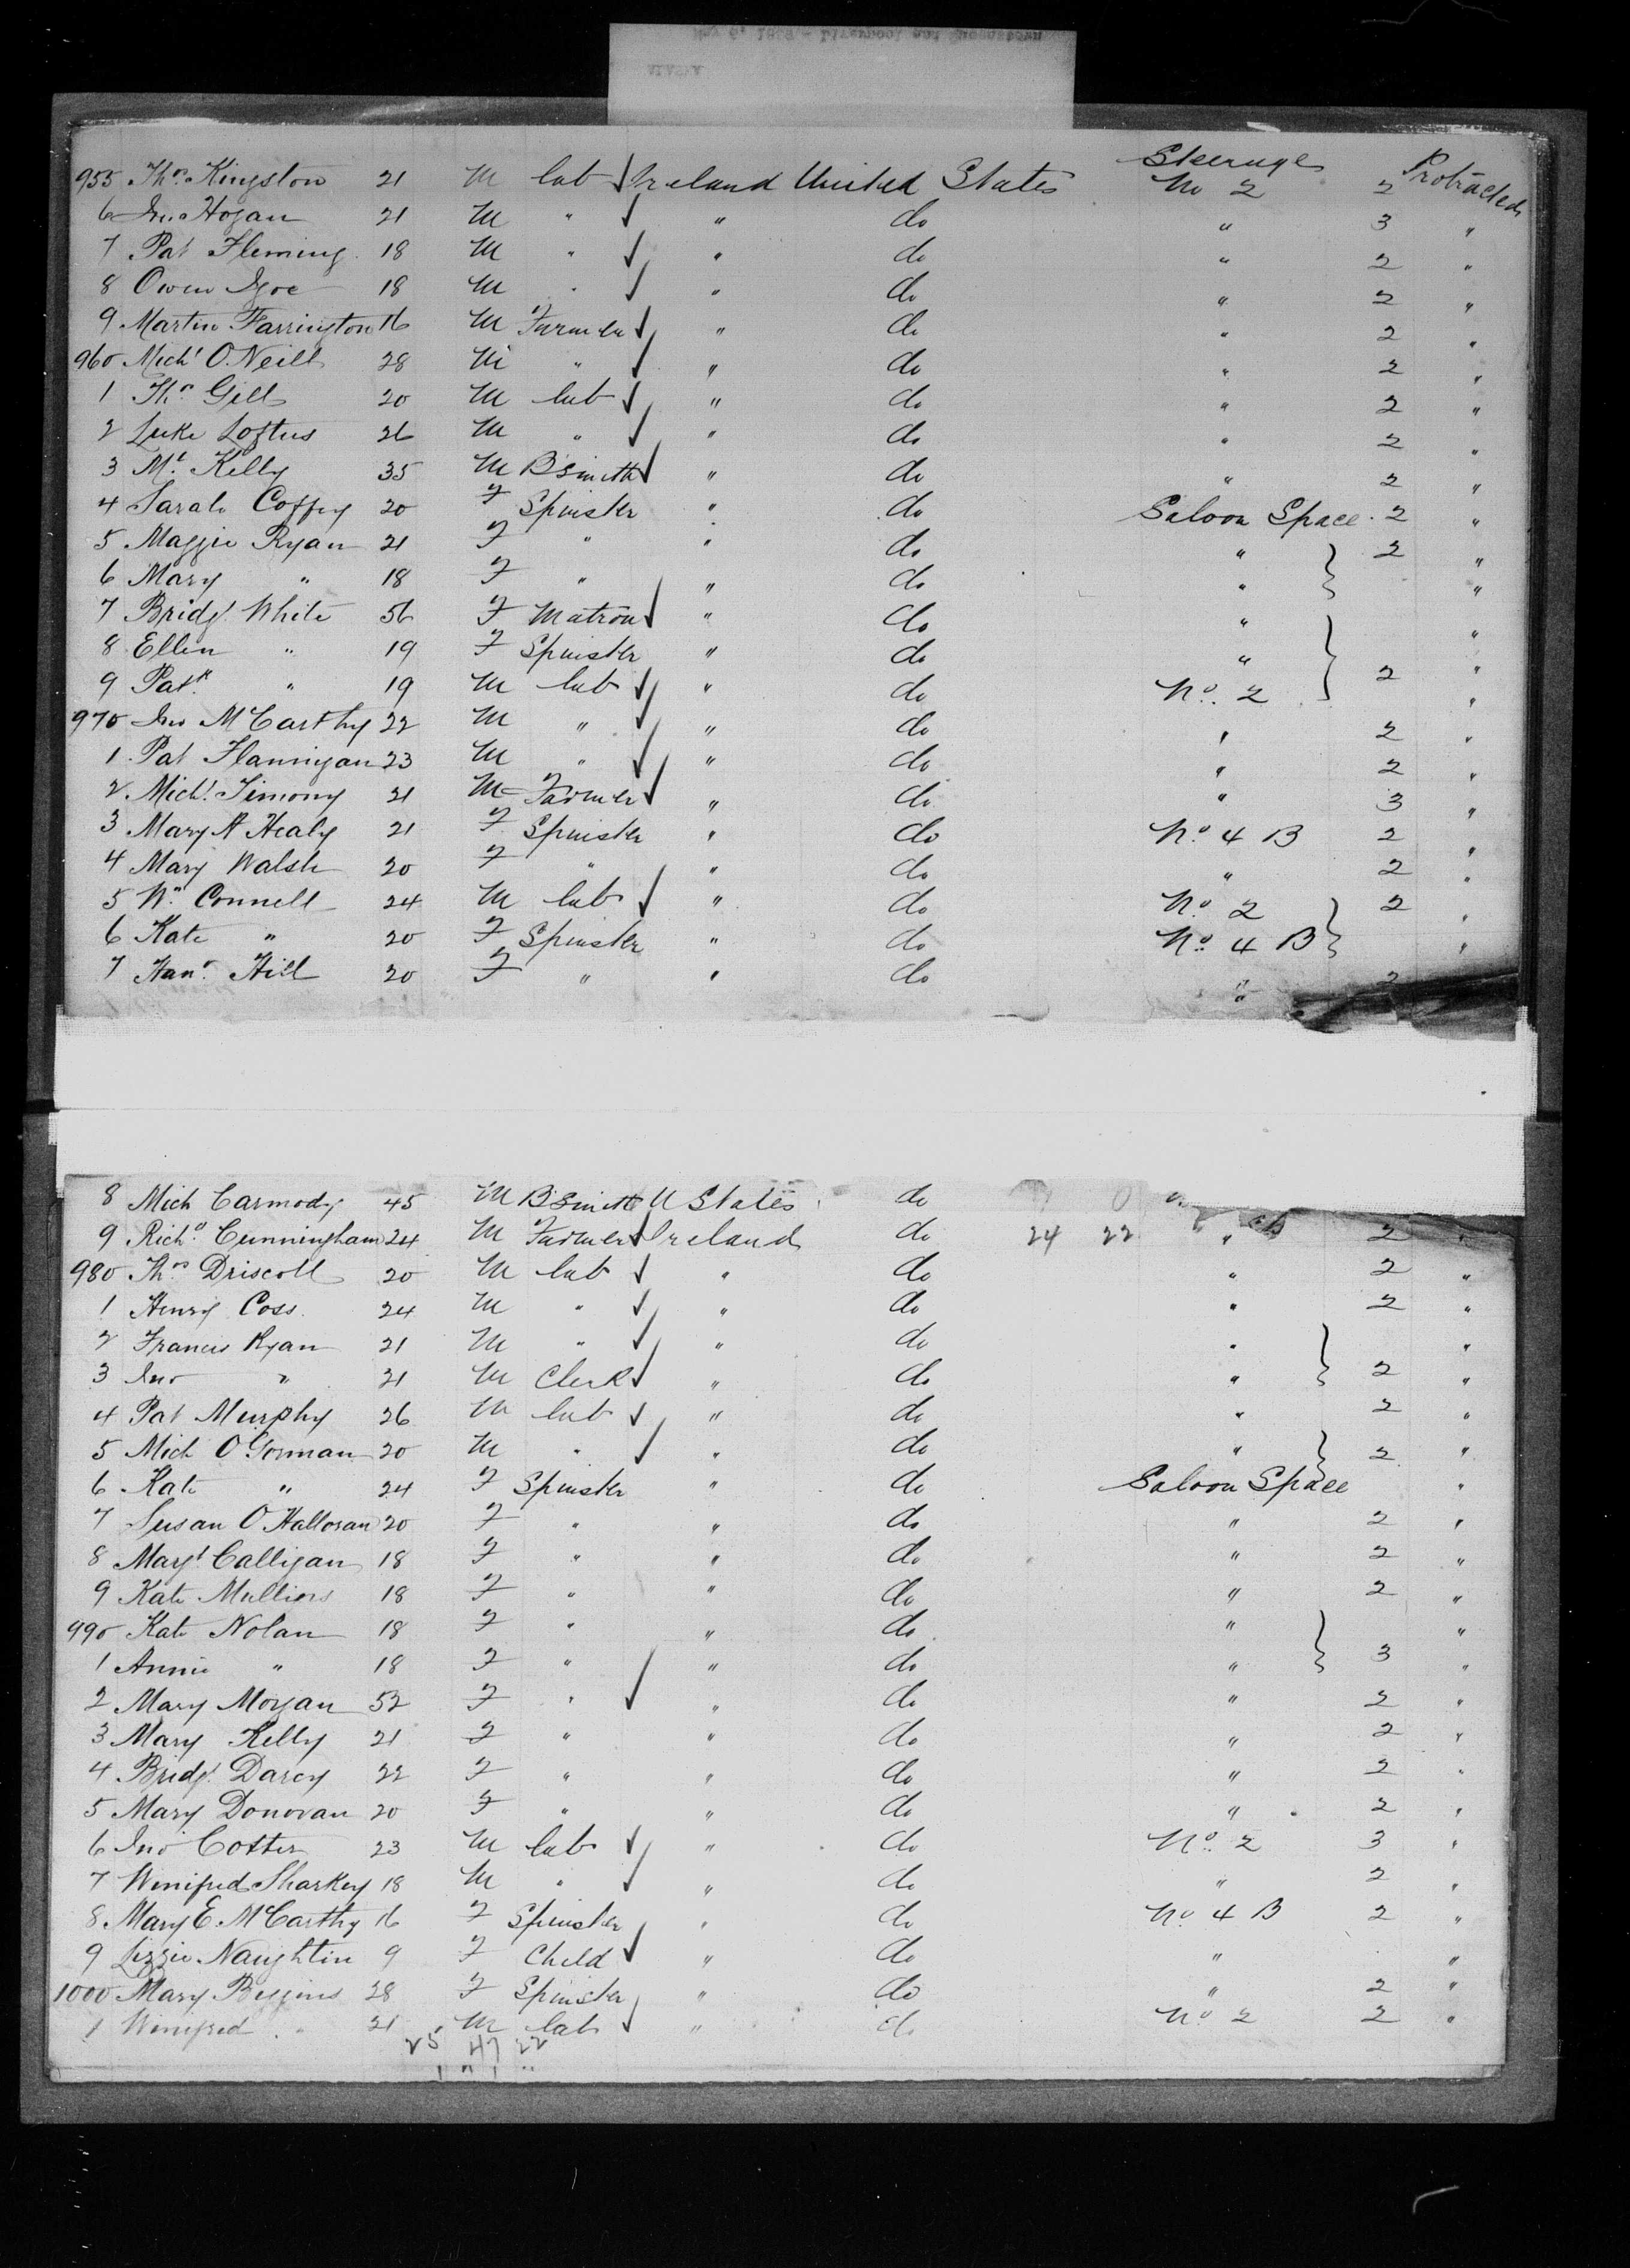 Steerage
955 Thos Kingston 21 M lab Ireland United States No 2 2 Protracted
6 Jno Hogan 21 M " " do " 3 "
7 Pat Fleming 18 M " " do " 2 "
8 Owen Igoe 18 M " " do " 2 "
9 Martin Farrington 16 M Farmer " do " 2 "
960 Michl O'Neill 28 M " " do " 2 "
1 Thos Gill 20 M lab " do " 2 "
2 Luke Loftus 26 M " " do " 2 "
3 Mt Kelly 35 M Bsmith " do " 2 "
4 Sarah Coffey 20 F Spinster " do Saloon Space 2 "
5 Maggie Ryan 21 F " " do " 2 "
6 Mary " 18 F " " do " "
7 Bridgt White 56 F Matron " do " "
8 Ellen " 19 F Spinster " do " "
9 Patk " 19 M lab " do No. 2 2 "
970 Jno McCarthy 22 M " " do " 2 "
1 Pat Flannigan 23 M " " do " 2 "
2 Michl Timony 21 M Farmer " do " 3 "
3 Mary A Healy 21 F Spinster " do No. 4 B 2 "
4 Mary Walsh 20 F " " do " 2 "
5 Wm Connell 24 M lab " do No. 2 2 "
6 Kate " 20 F Spinster " do No. 4 B "
7 Hanr Hill 20 F " " do " 2
8 Mich Carmody 45 M Bsmith U States do
9 Richd Cunningham 24 M Farmer Ireland do 24 22 " 2 "
980 Thos Driscoll 20 M lab " do " 2 "
1 Henry Coss 24 M " " do " 2 "
2 Francis Ryan 21 M " " do " "
3 Jno " 21 M Clerk " do " 2 "
4 Pat Murphy 26 M lab " do " 2 "
5 Mich O'Gorman 20 M " " do " 2 "
6 Kate " 24 F Spinster " do Saloon Space "
7 Susan O'Halloran 20 F " " do " 2 "
8 Margt Calligan 18 F " " do " 2 "
9 Kate Mullins 18 F " " do " 2 "
990 Kate Nolan 18 F " " do " "
1 Annie " 18 F " " do " 3 "
2 Mary Morgan 52 F " " do " 2 "
3 Mary Kelly 21 F " " do " 2 "
4 Bridgt Darcy 22 F " " do " 2 "
5 Mary Donovan 20 F " " do " 2 "
6 Jno Cotter 23 M lab " do No. 2 3 "
7 Winifred Sharkey 18 M " " do " 2 "
8 Mary E. McCarthy 16 F Spinster " do No. 4 B 2 "
9 Lizzie Naughtin 9 F Child " do " "
1000 Mary Beggins 28 F Spinster " do " 2 "
1 Winifred " 21 M lab " do No. 2 2 "
25 47 22